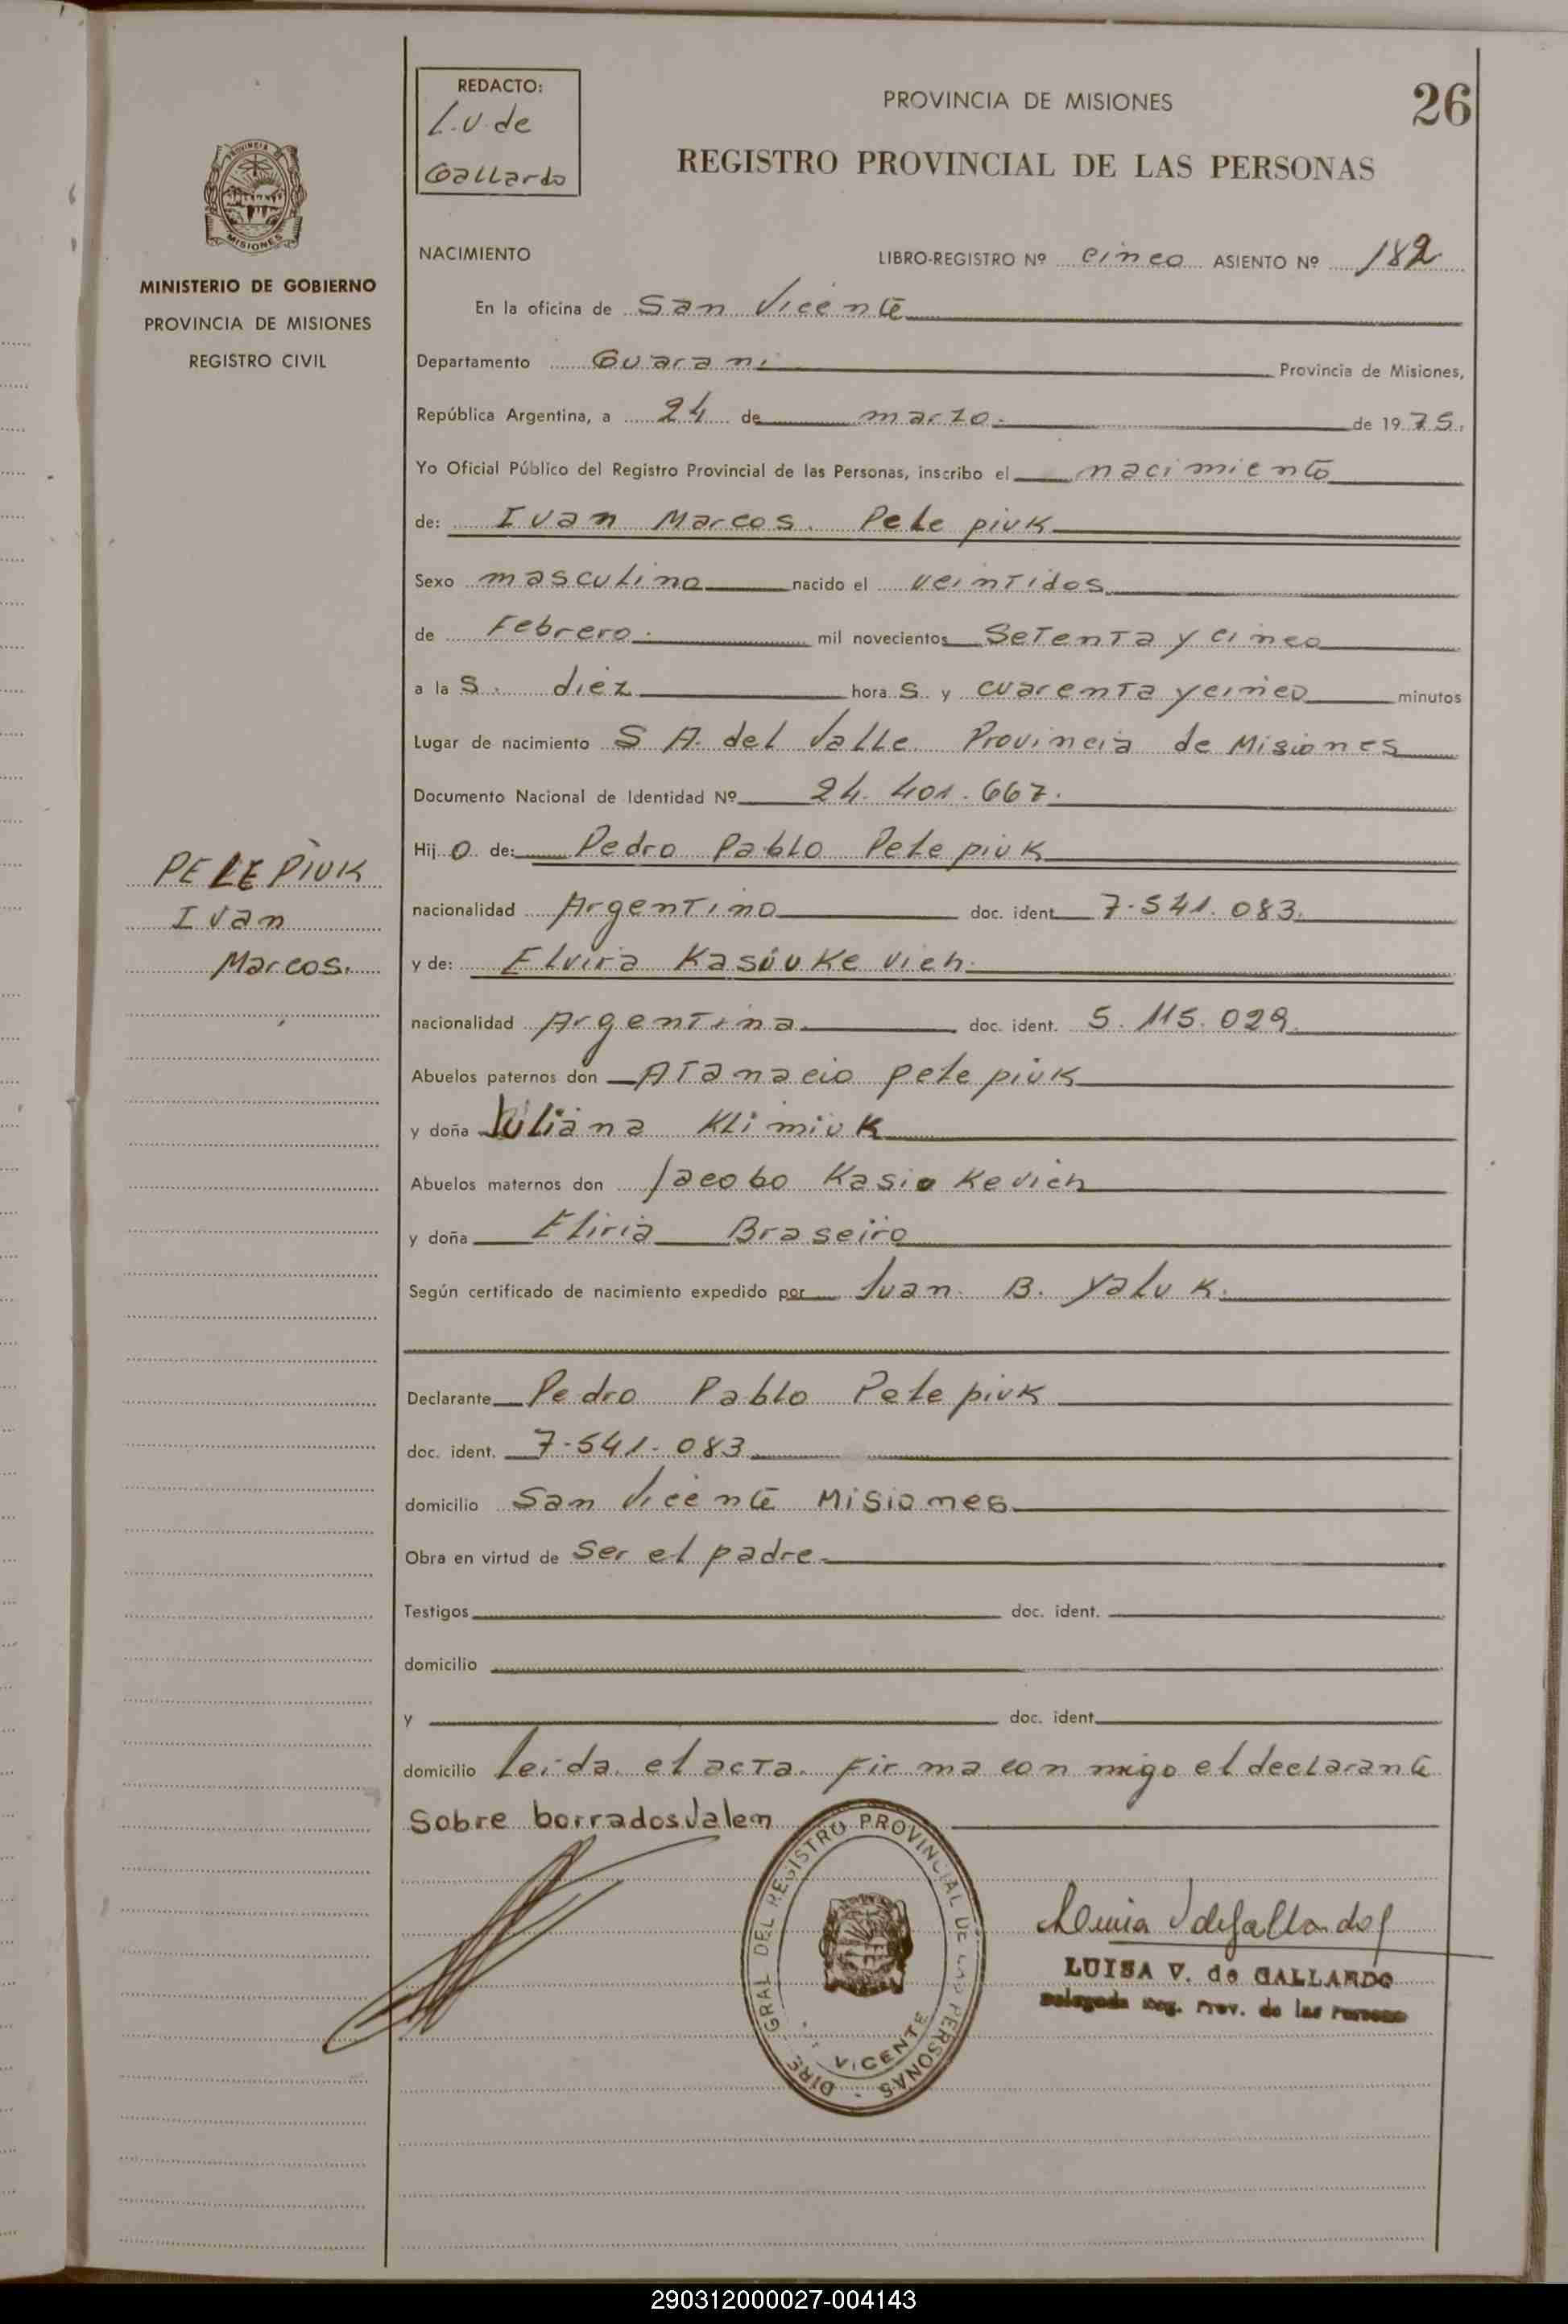 REDACTO:
L.V. de
Gallardo
PROVINCIA DE MISIONES
26
REGISTRO PROVINCIAL DE LAS PERSONAS
PROVINCIA DE
MISIONES
MINISTERIO DE GOBIERNO
PROVINCIA DE MISIONES
REGISTRO CIVIL
NACIMIENTO LIBRO-REGISTRO Nº cinco ASIENTO Nº 182
En la oficina de San Vicente
Departamento Guarani Provincia de Misiones,
República Argentina, a 24 de marzo. de 1975.
Yo Oficial Público del Registro Provincial de las Personas, inscribo el nacimiento
de: Ivan Marcos. Pelepiuk
Sexo masculino nacido el veintidos
de Febrero. mil novecientos Setenta y cinco
a las. diez horas y cuarenta y cinco minutos
Lugar de nacimiento S A. del Valle Provincia de Misiones
Documento Nacional de Identidad Nº 24.401.667.
Hijo de: Pedro Pablo Pelepiuk
PELEPIUK
Ivan
Marcos.
nacionalidad Argentino doc. ident. 7.541.083.
y de: Elvira Kasiukevich.
nacionalidad Argentina doc. ident. 5.115.029.
Abuelos paternos don Atanacio pelepiuk
y doña Juliana Klimiuk
Abuelos maternos don Jacobo Kasiokevich
y doña Eliria Braseiro
Según certificado de nacimiento expedido por Juan. B. Yaluk.
Declarante Pedro Pablo Pelepiuk
doc. ident. 7.541.083
domicilio San Vicente Misiones
Obra en virtud de Ser el padre.
Testigos doc. ident.
domicilio
y doc. ident.
domicilio leida el acta. Firma con migo el declarante
Sobre borrados Valen
DIRE. GRAL DEL REGISTRO PROVINCIAL DE LAS PERSONAS
VICENTE
LUISA V. de GALLARDO
Delegada Reg. Prov. de las Personas
290312000027-004143